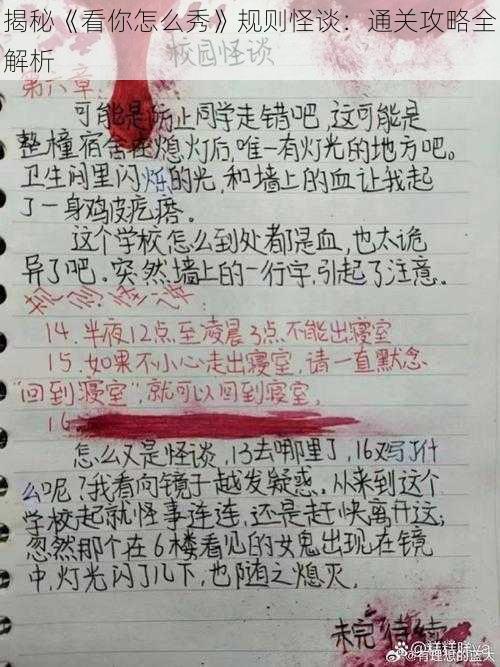 揭秘《看你怎么秀》规则怪谈：通关攻略全
解析
校园怪谈
第六章:
可能是防止同学走错吧，这可能是
整橦宿舍在熄灯后，唯一有灯光的地方吧。
卫生间里闪烁的光，和墙上的血让我起
了一身鸡皮疙瘩。
这个学校怎么到处都是血，也太诡
异了吧。突然墙上的一行字，引起了注意。
规则怪谈:
14.半夜12点至凌晨3点不能出寝室
15.如果不小心走出寝室，请一直默念
"回到寝室"，就可以回到寝室。
16
怎么又是怪谈，13去哪里了，16写了什
么呢?我看向镜子越发疑惑。从来到这个
学校起就怪事连连，还是赶快离开这;
忽然那个在6楼看见的女鬼出现在镜
中，灯光闪了几下，也随之熄灭。
未完待续
@有理想的蓝天